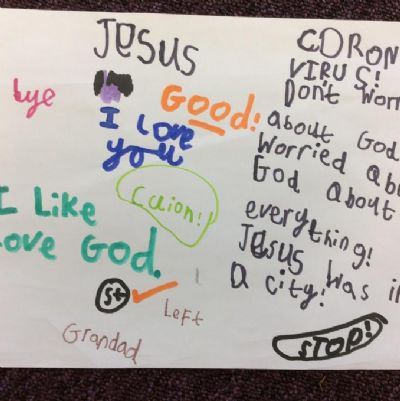 JesUS
Lye
Good!
I Love
you
Caion!
I Like
Love God.
St
Left
Grandad
CORON
VIRUS!
Don't Worr
about God
Worried Abo
God About
everything!
Jesus Was in
a city!
STOP!